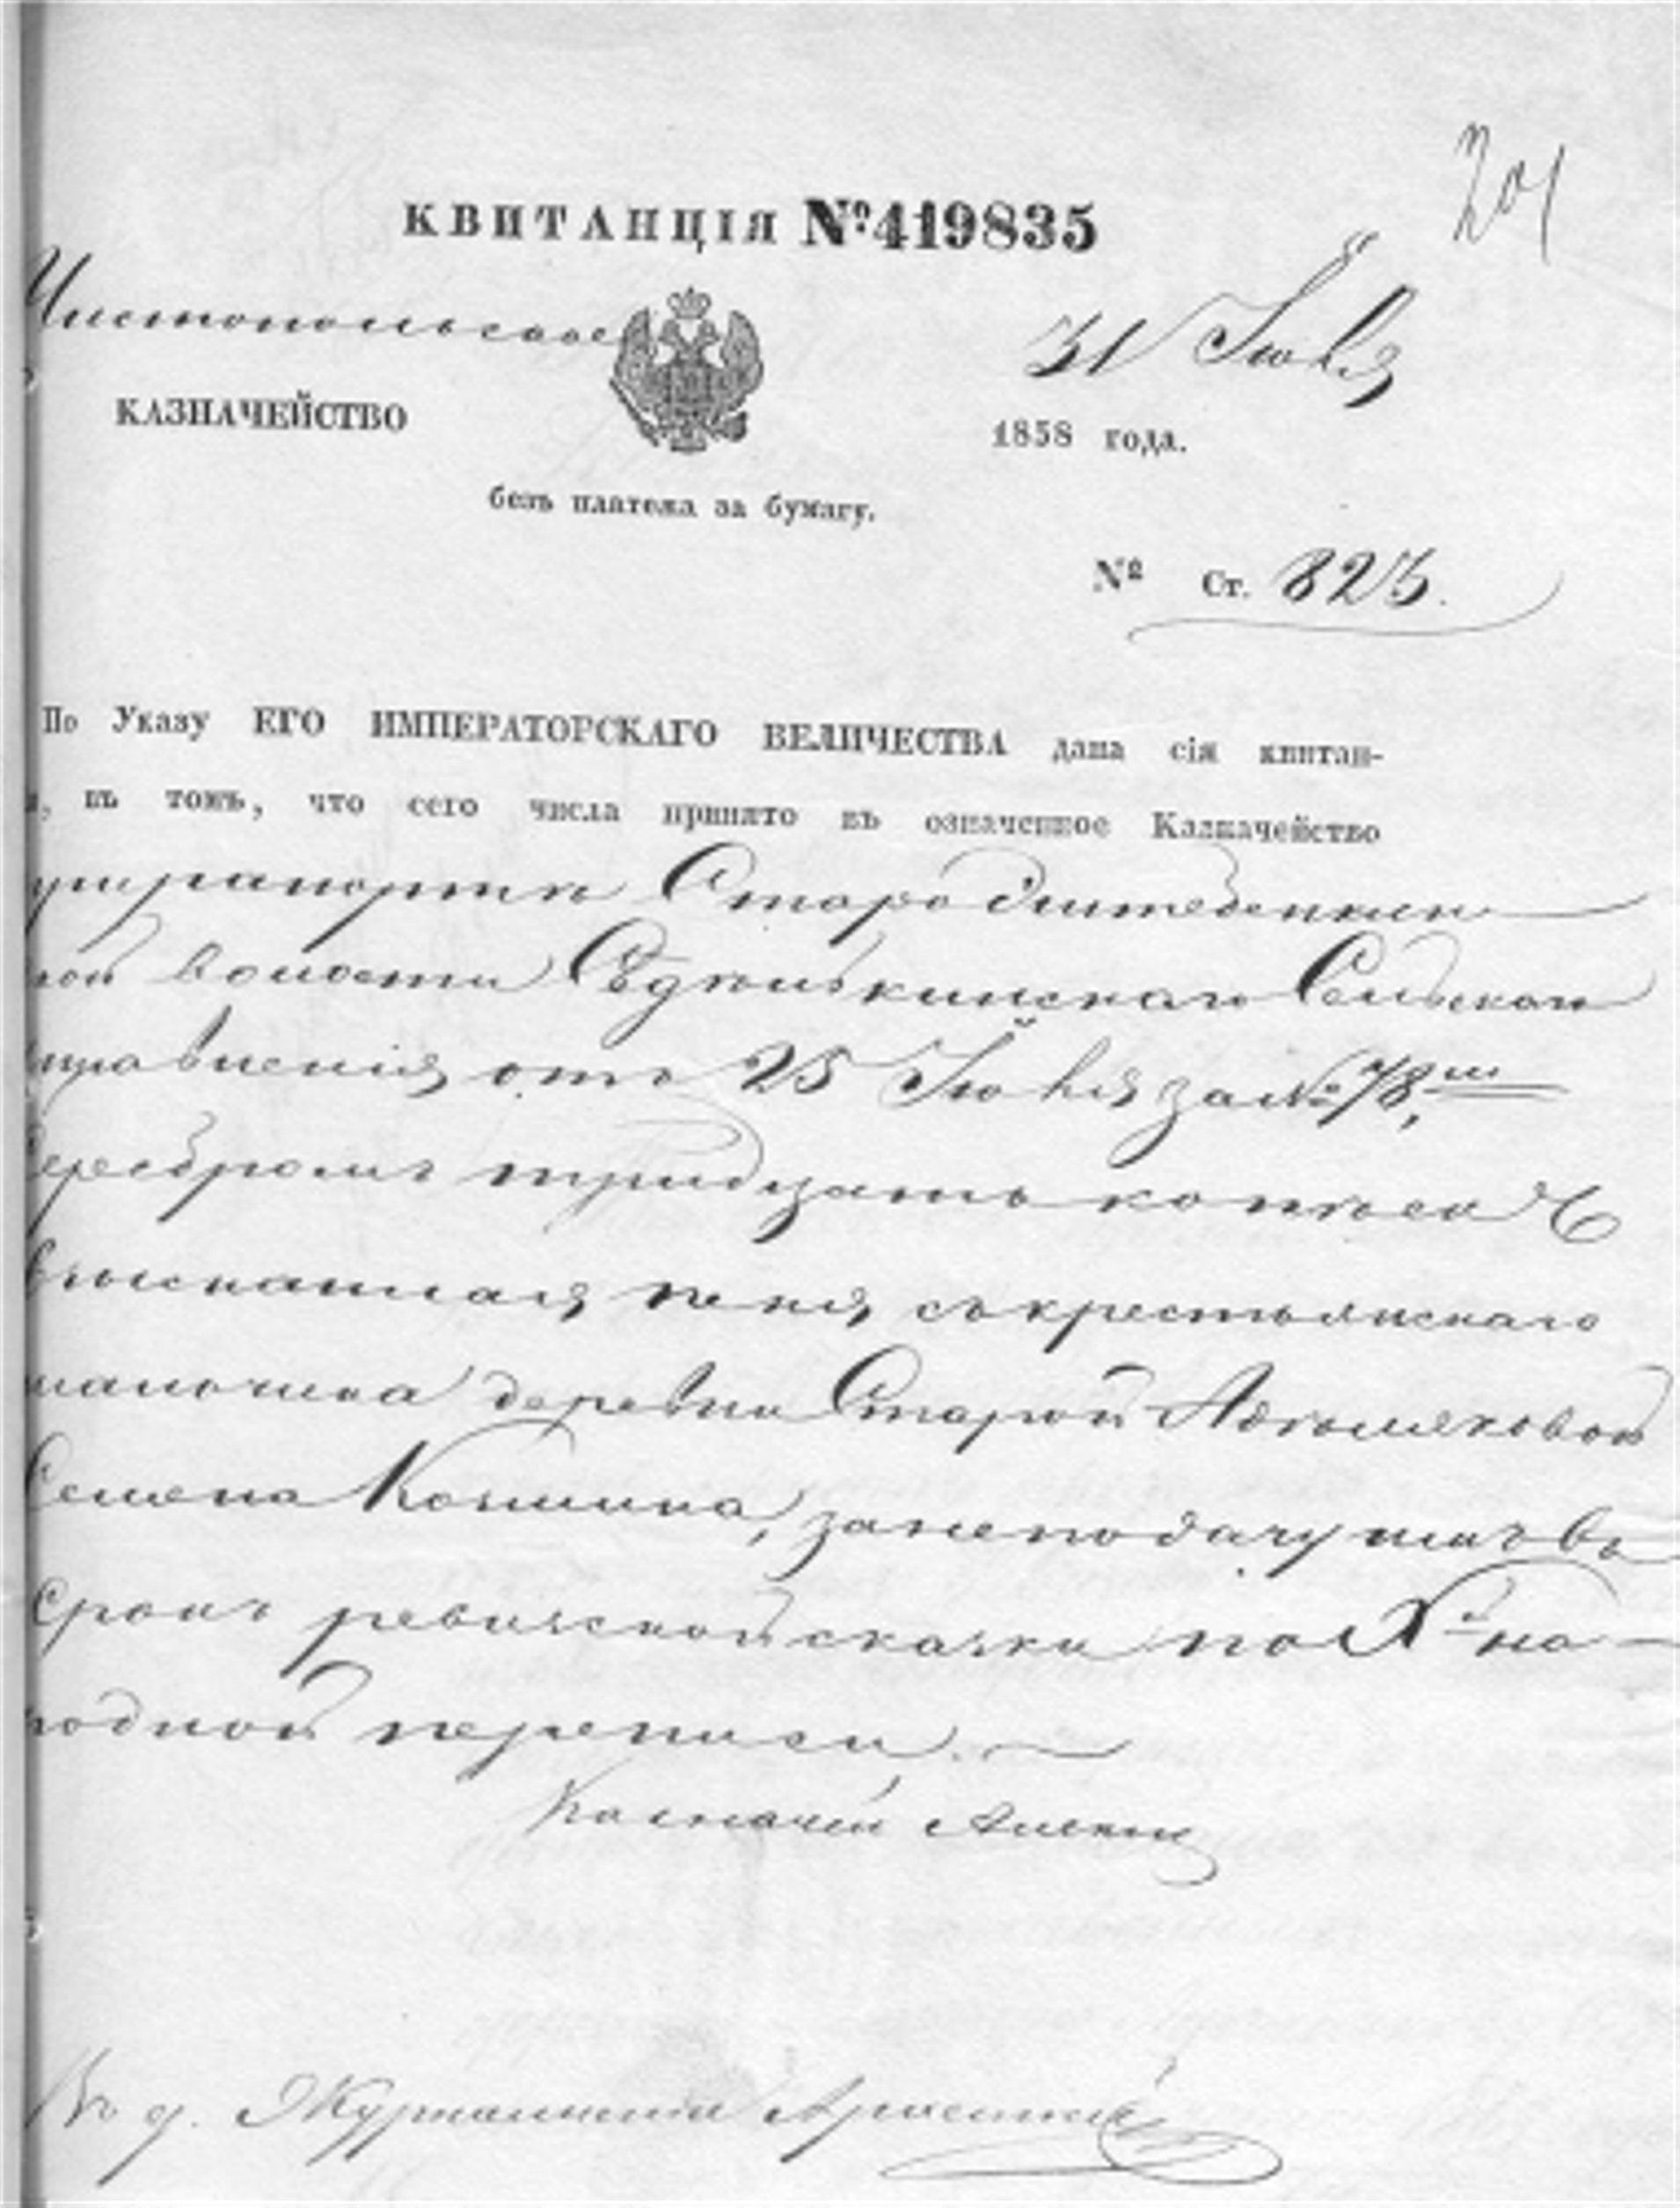 201
КВИТАНЦІЯ №419835
Чистопольское
31 Іюля
КАЗНАЧЕЙСТВО
1858 года.
безъ платежа за бумагу.
№ Ст. 823.
По Указу ЕГО ИМПЕРАТОРСКАГО ВЕЛИЧЕСТВА дана сія квитан-
, въ томъ, что сего числа принято въ означенное Казначейство
при рапортѣ Старо
ной волости Сельскаго
правленія отъ 25 Іюля за №78,
серебромъ тридцать копѣекъ
взысканная пеня съ крестьянскаго
деревни Старой
Семена за неподачу имъ въ
срокъ ревизской сказки по Х й на-
родной переписи.
Казначей
В д. Журналиста